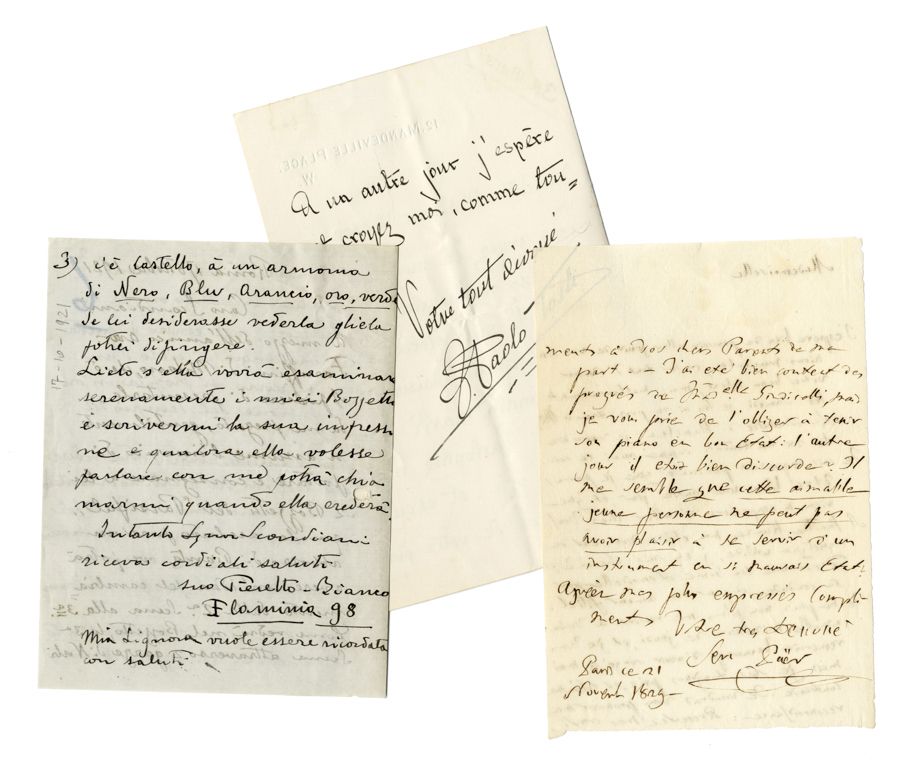 12, MANDEVILLE PLACE.
W
A un autre jour j'espère
et croyez moi, comme tou=
Votre tout dévoué
P. Paolo
3) c'è Castello, à un armonia
di Nero, Blu, Arancio, oro, verde
Se lei desiderasse vederla gliela
potrei dipingere.
Lieto s'ella vorrà esaminar
serenamente i miei Bozzetti
e scrivermi la sua impress
ne e qualora ella volesse
parlare con me potrà chia
marmi quando ella crederà.
Intanto Signor Scandiani
riceva cordiali saluti
suo Pieretto-Bianco
Flaminia 98
Mia Signora vuole essere ricordata
con saluti
17-10-1921
Mademoiselle
ments à Vos chers Parents de ma
part — J'ai eté bien content des
progrès de Mad.elle Sindicalli, mais
je vous prie de l'obliger à tenir
son piano en bon Etat: l'autre
jour il etoit bien discorde. Il
me semble que cette aimable
jeune personne ne peut pas
avoir plaisir à se servir d'un
instrument en si mauvais Etat.
Agréer mes plus empressés compli
ments Votre très Devoué
Serv Päer
Paris ce 21
Novemb 1829-